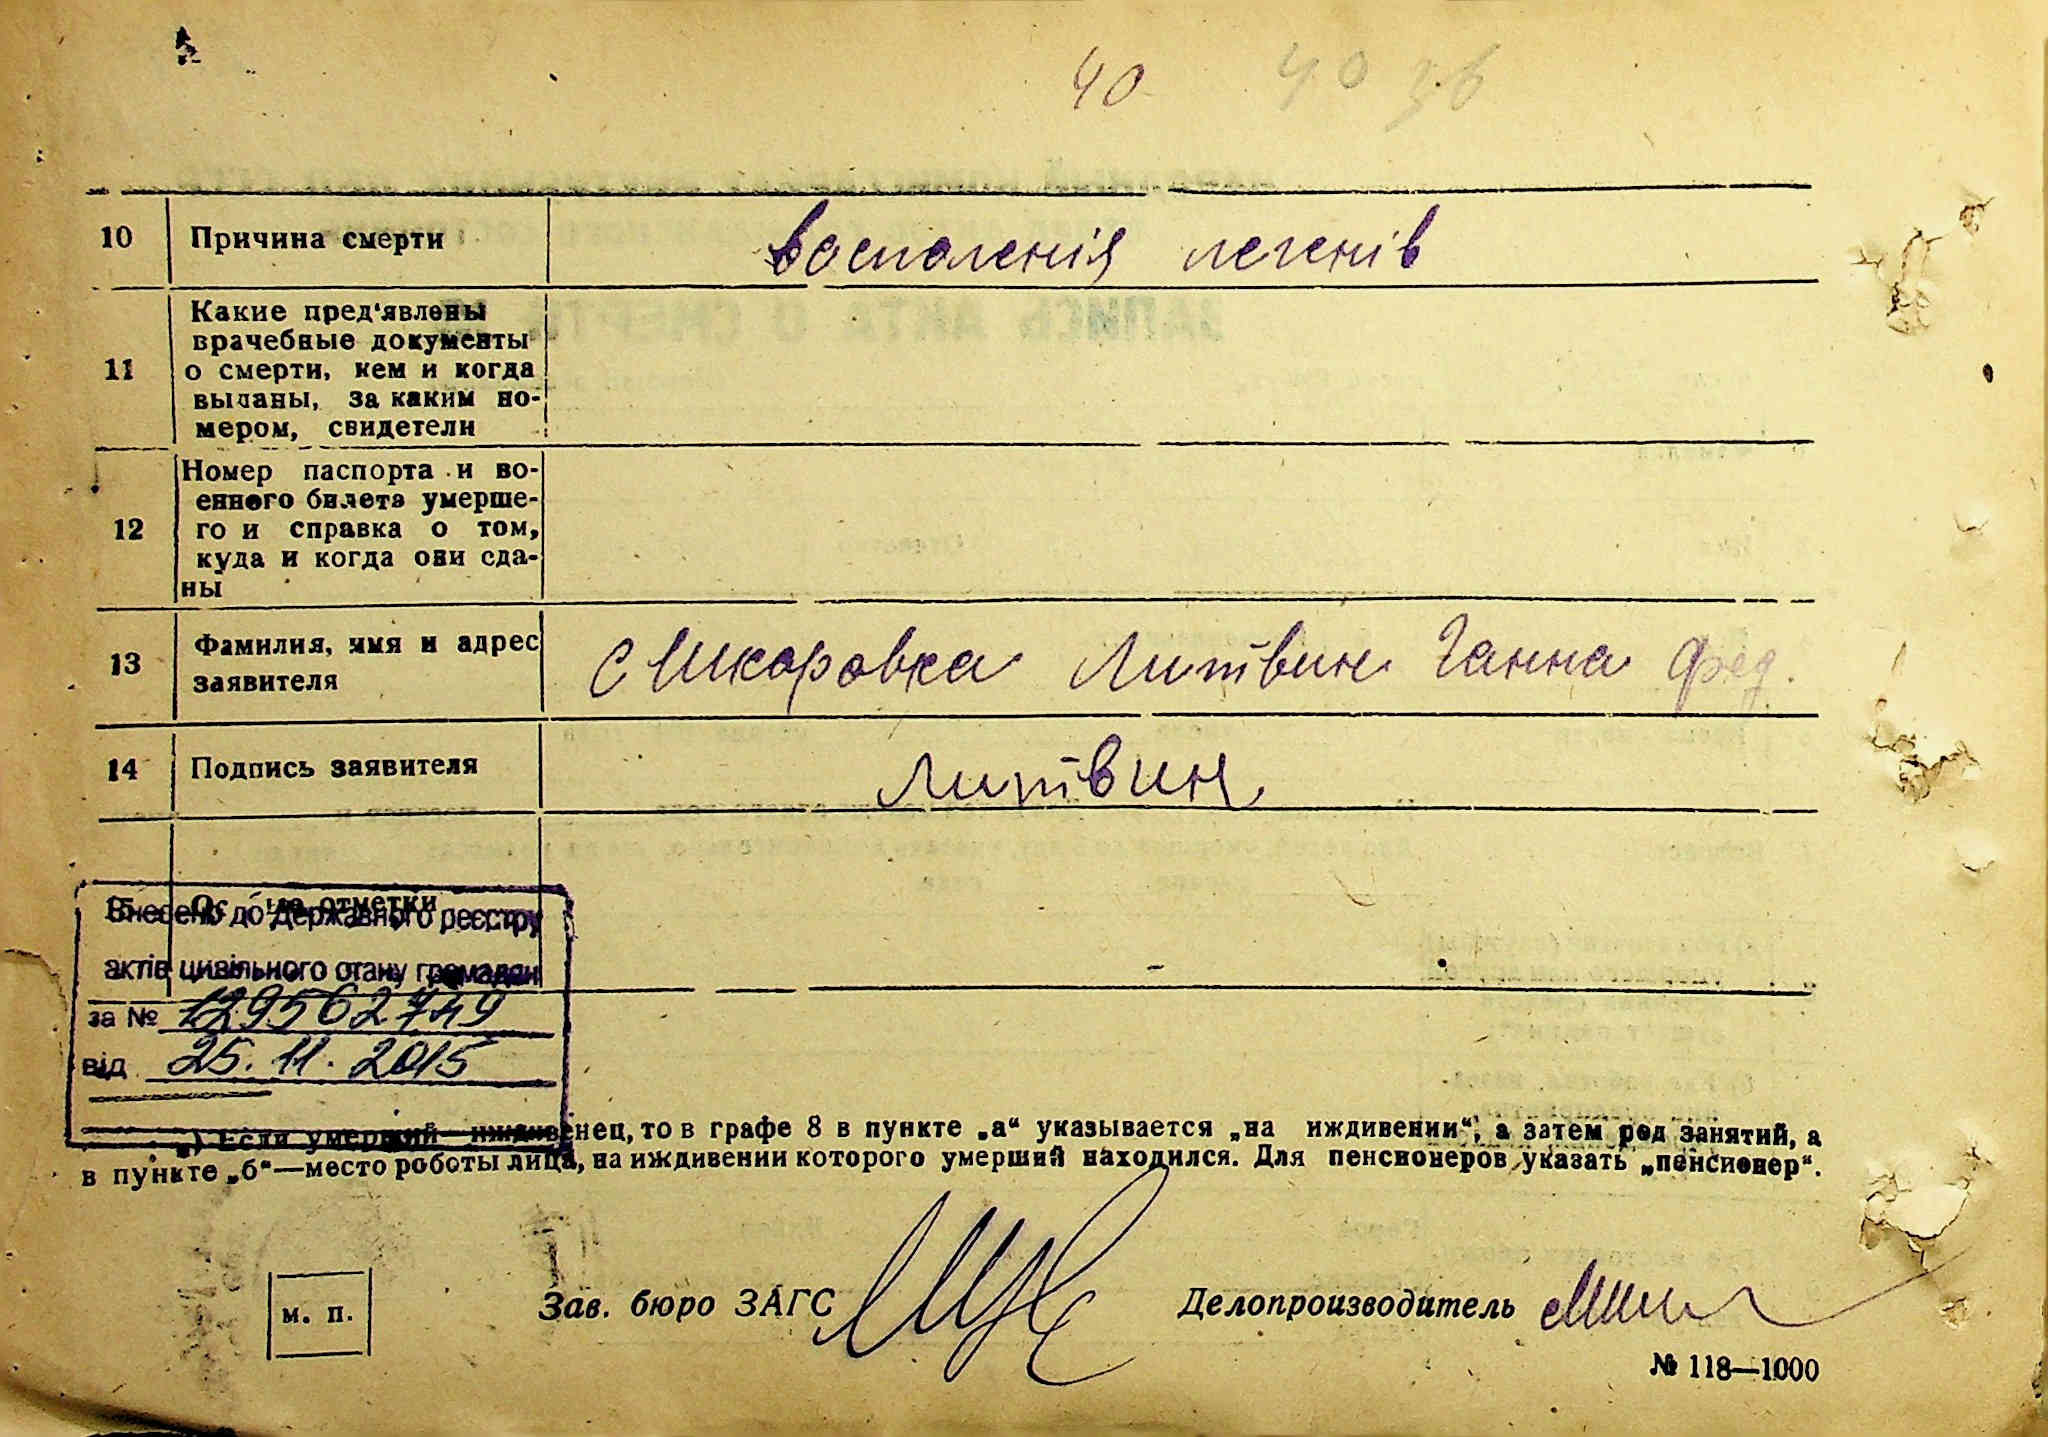 40 40 зв
10 Причина смерти воспаленія легенів
Какие пред'явлены
врачебные документы
11 о смерти, кем и когда
выданы, за каким но-
мером, свидетели
Номер паспорта и во-
енного билета умерше-
12 го и справка о том,
куда и когда они сда-
ны
13 Фамилия, имя и адрес с Шкаровка Литвин Ганна Фед.
заявителя
14 Подпись заявителя Литвин
15 отметки
Внесено до Державного реєстру
актів цивільного стану громадян
за № 129562749
від 25.11.2015
*) Если умерший иждивенец, то в графе 8 в пункте „а“ указывается „на иждивении“, а затем род занятий, а
в пункте „б“—место роботы лица, на иждивении которого умерший находился. Для пенсионеров указать „пенсионер“.
м. п. Зав. бюро ЗАГС Делопроизводитель
№ 118—1000